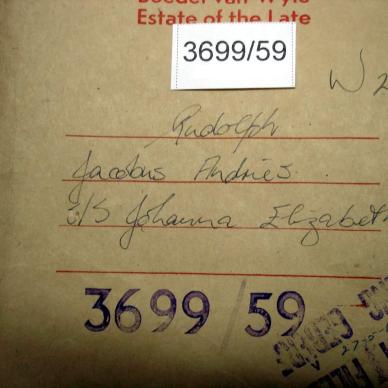 Boedel van Wyle
Estate of the Late
3699/59
W 2
Rudolph
Jacobus Andries.
S/S Johanna Elizabeth
3699/59